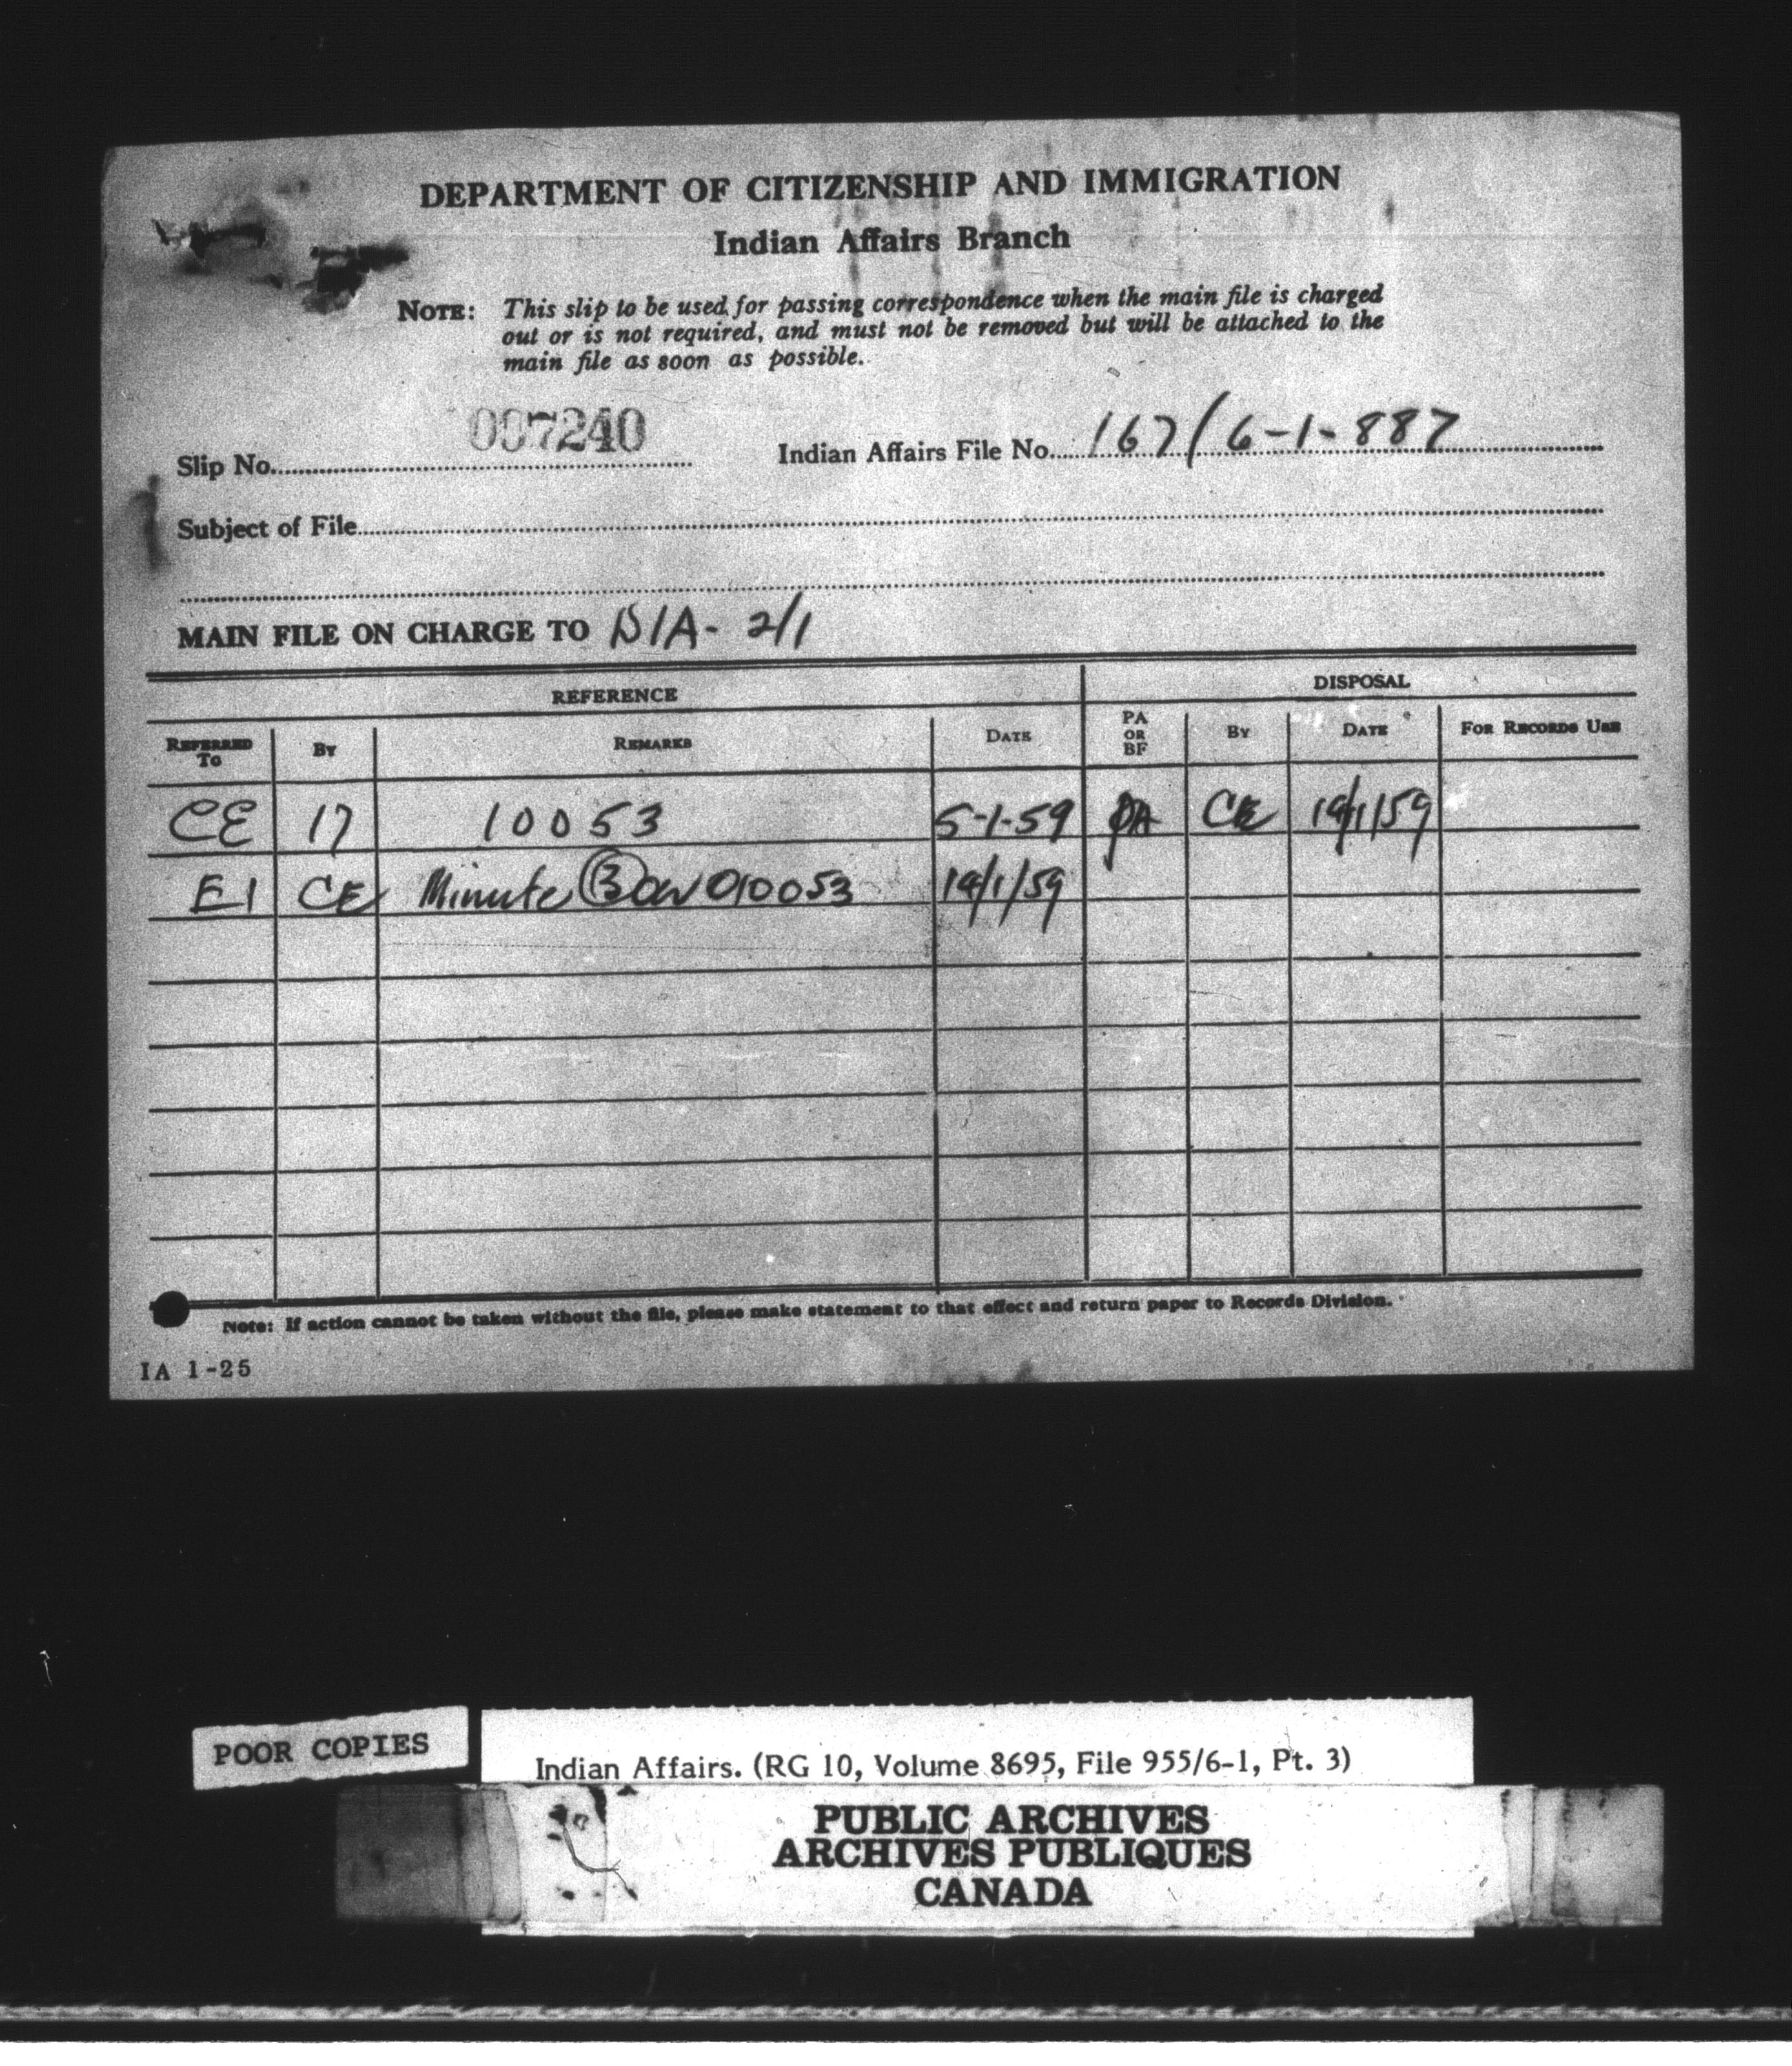 DEPARTMENT OF CITIZENSHIP AND IMMIGRATION
Indian Affairs Branch
NOTE: This slip to be used for passing correspondence when the main file is charged
out or is not required, and must not be removed but will be attached to the
main file as soon as possible.
Slip No. 007240 Indian Affairs File No. 167/6-1-887
Subject of File
MAIN FILE ON CHARGE TO DIA- 2/1
REFERENCE DISPOSAL
REFERRED TO BY REMARKS DATE PA OR BF BY DATE FOR RECORDS USE
CE 17 10053 5-1-59 PA CE 19/1/59
E1 CE Minute 3 on 010053 19/1/59
Note: If action cannot be taken without the file, please make statement to that effect and return paper to Records Division.
IA 1-25
POOR COPIES
Indian Affairs. (RG 10, Volume 8695, File 955/6-1, Pt. 3)
PUBLIC ARCHIVES
ARCHIVES PUBLIQUES
CANADA